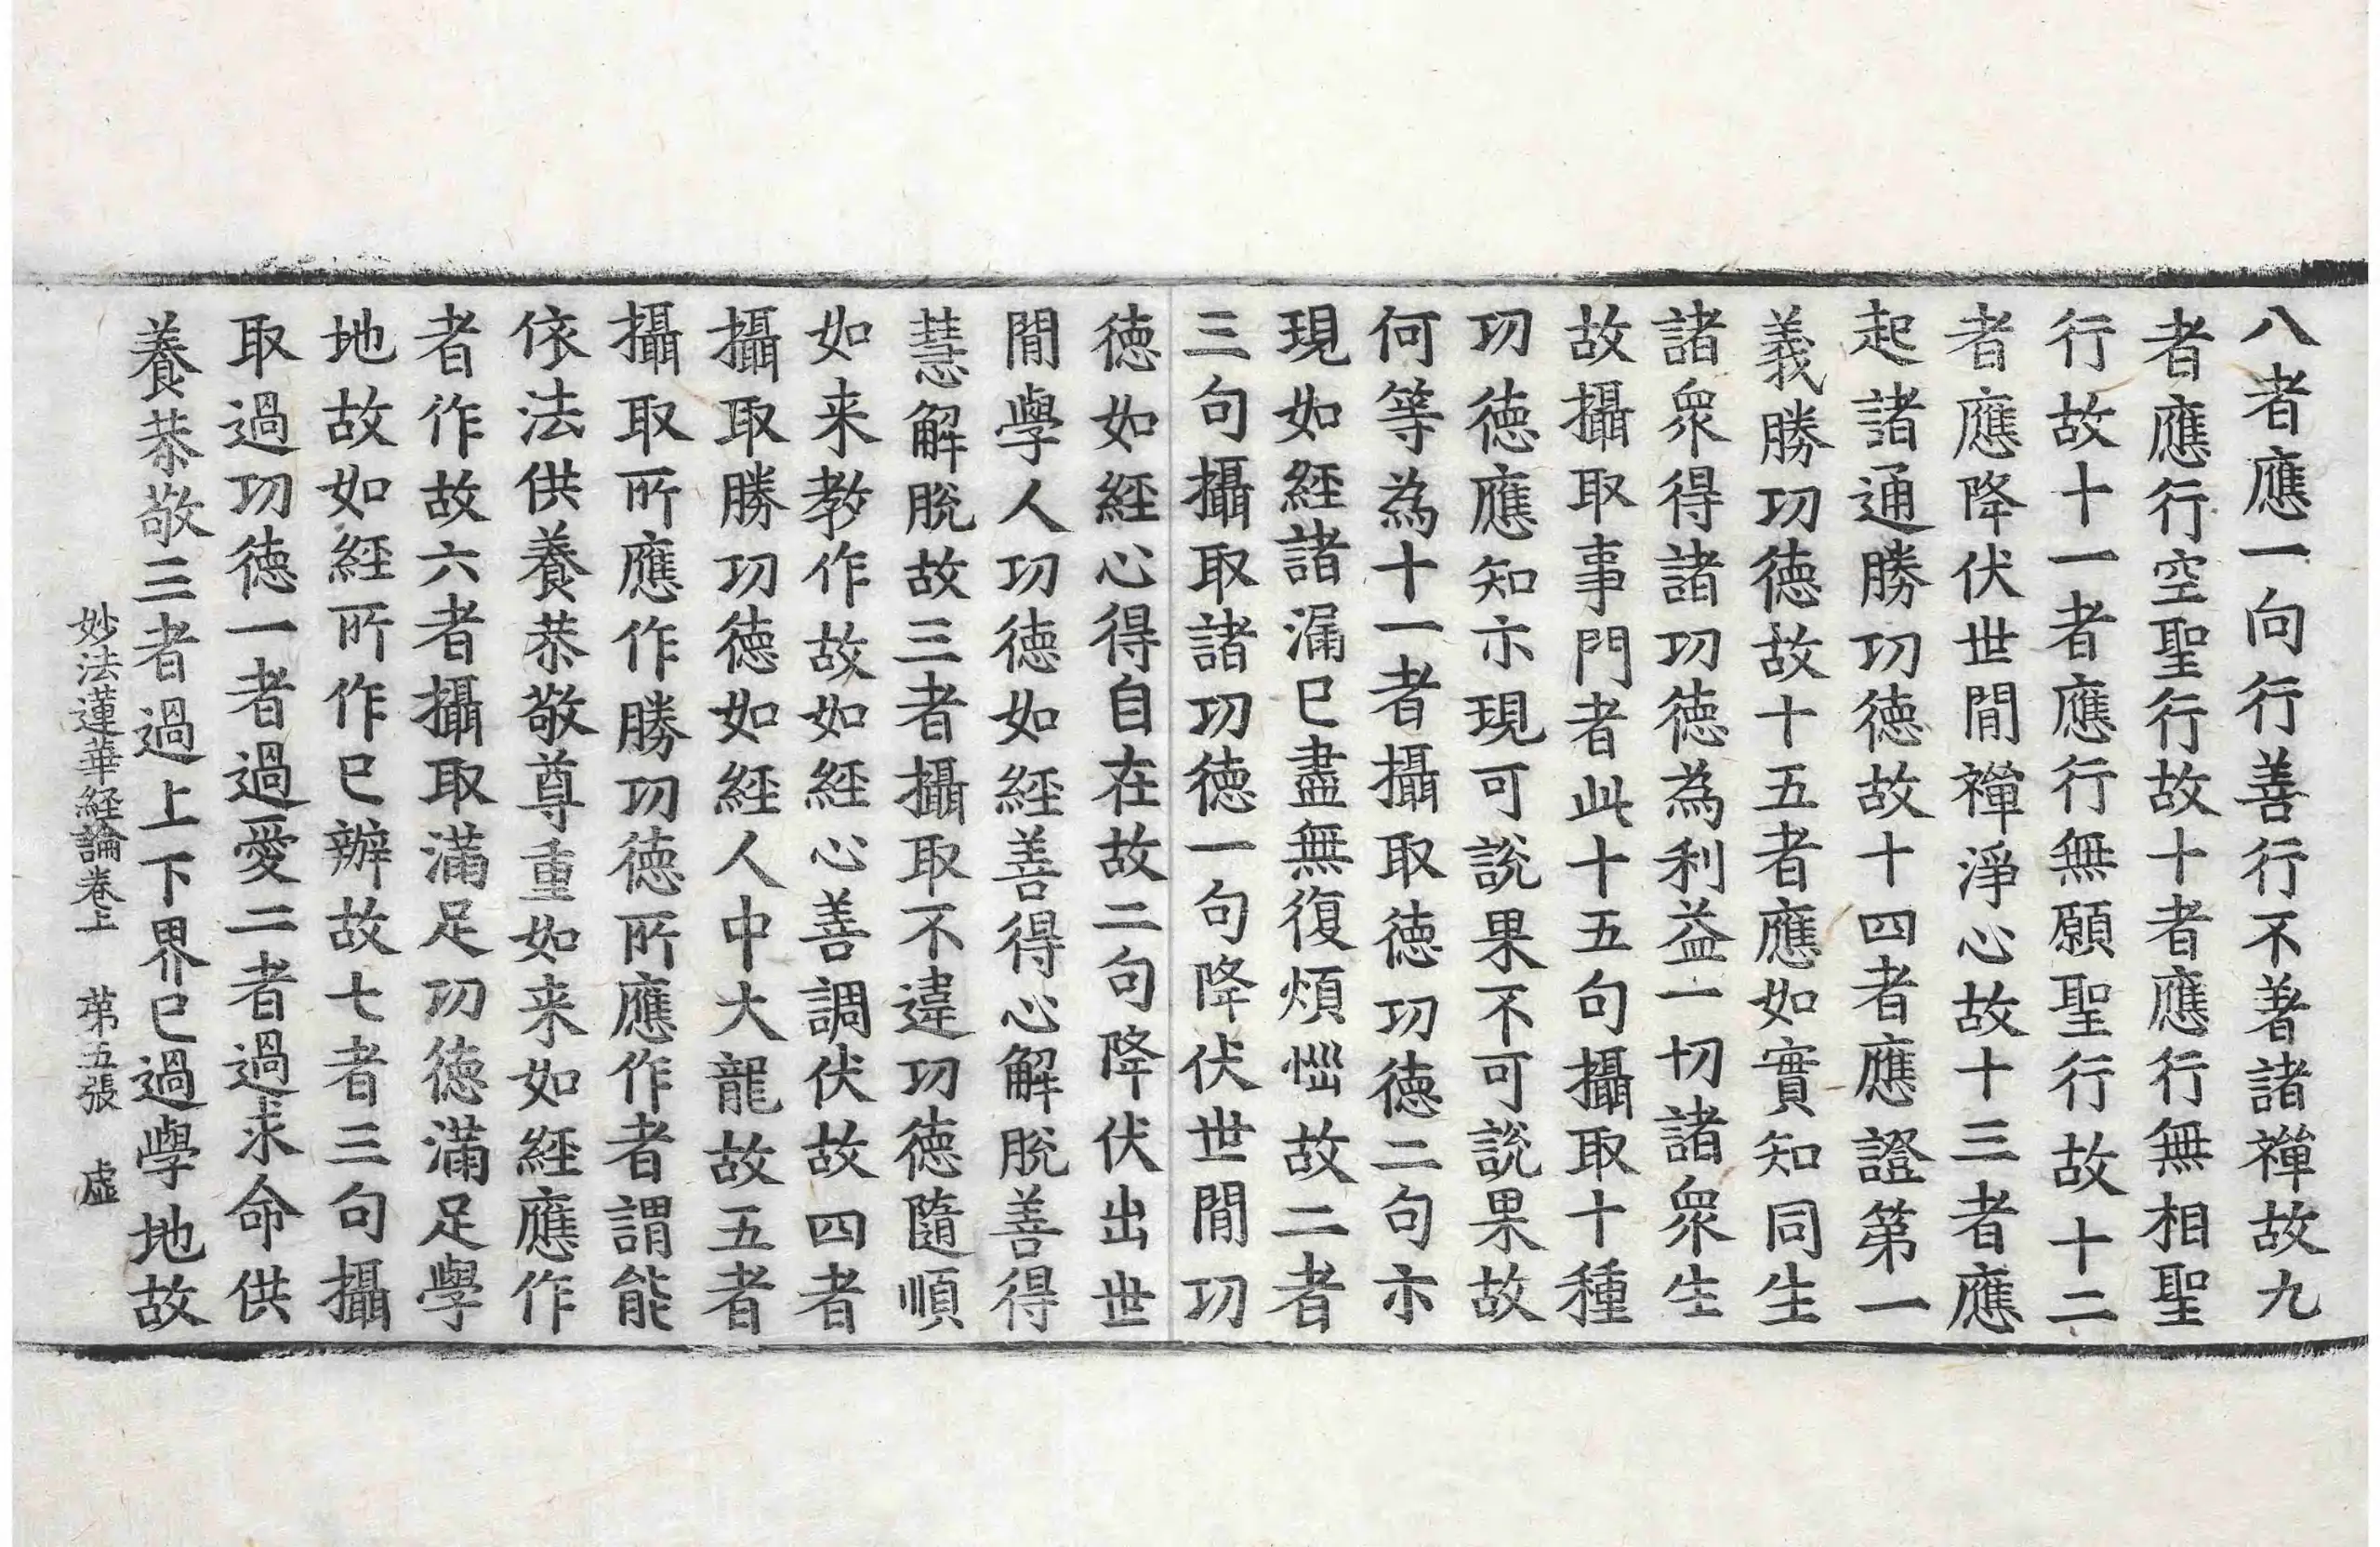 八者應一向行善行不著諸禪故九
者應行空聖行故十者應行無相聖
行故十一者應行無願聖行故十二
者應降伏世閒禪淨心故十三者應
起諸通勝功德故十四者應證第一
義勝功德故十五者應如實知同生
諸衆得諸功德為利益一切諸衆生
故攝取事門者此十五句攝取十種
功德應知示現可說果不可說果故
何等為十一者攝取德功德二句示
現如經諸漏已盡無復煩惱故二者
三句攝取諸功德一句降伏世閒功
德如經心得自在故二句降伏出世
閒學人功德如經善得心解脫善得
慧解脫故三者攝取不違功德隨順
如来教作故如經心善調伏故四者
攝取勝功德如經人中大龍故五者
攝取所應作勝功德所應作者謂能
依法供養恭敬尊重如来如經應作
者作故六者攝取滿足功德滿足學
地故如經所作已辦故七者三句攝
取過功德一者過愛二者過求命供
養恭敬三者過上下界已過學地故
妙法蓮華經論卷上　第五張　虛